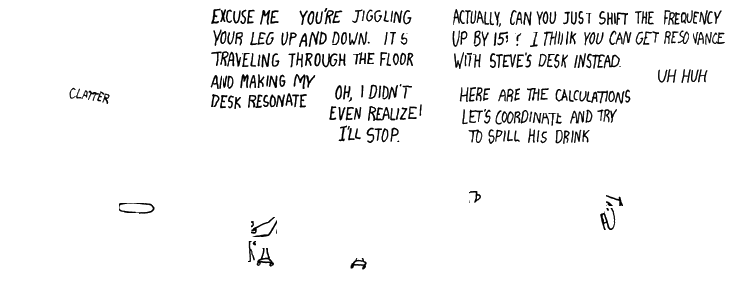 CLATTER
EXCUSE ME YOU'RE JIGGLING
YOUR LEG UP AND DOWN. IT S
TRAVELING THROUGH THE FLOOR
AND MAKING MY
DESK RESONATE
OH, I DIDN'T
EVEN REALIZE!
I'LL STOP.
ACTUALLY, CAN YOU JUST SHIFT THE FREQUENCY
UP BY 15? I THINK YOU CAN GET RESONANCE
WITH STEVE'S DESK INSTEAD.
UH HUH
HERE ARE THE CALCULATIONS
LET'S COORDINATE AND TRY
TO SPILL HIS DRINK